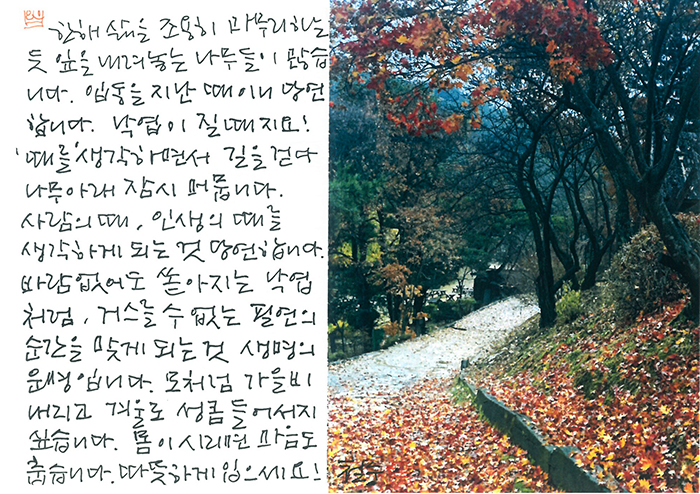 한해 삶을 조용히 마무리하는
듯 잎을 내려놓는 나무들이 많습
니다. 입동을 지난 때이니 당연
합니다. 낙엽이 질 때지요!
'때를' 생각하면서 길을 걷다
나무아래 잠시 머뭅니다.
사람의 때, 인생의 때를
생각하게 되는 것 당연합니다.
바람없어도 쏟아지는 낙엽
처럼, 거스를 수 없는 필연의
순간을 맞게 되는 것 생명의
운명입니다. 모처럼 가을비
내리고 겨울로 성큼 들어서지
싶습니다. 몸이 시리면 마음도
춥습니다. 따뜻하게 입으세요!